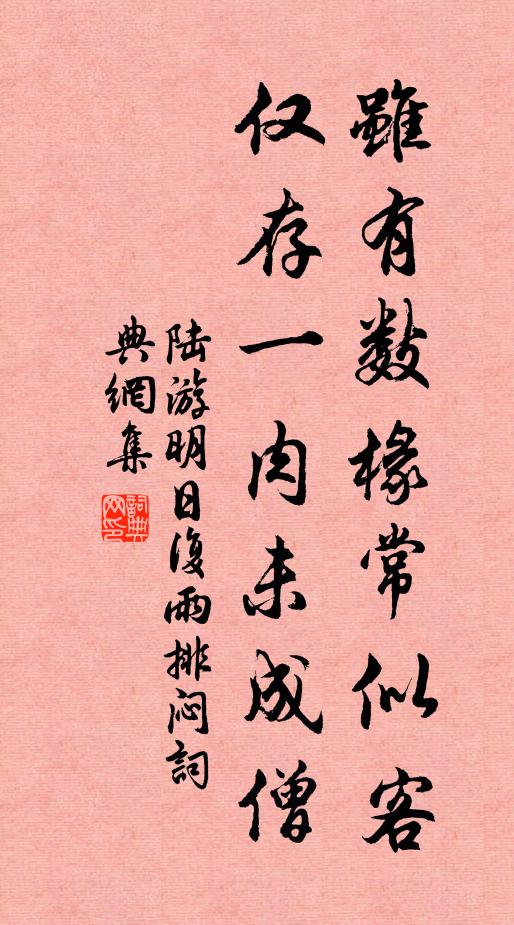 雖有数椽常似客
仅存一肉未成僧
陆游明日復雨排闷詞
典網集
詞典网印